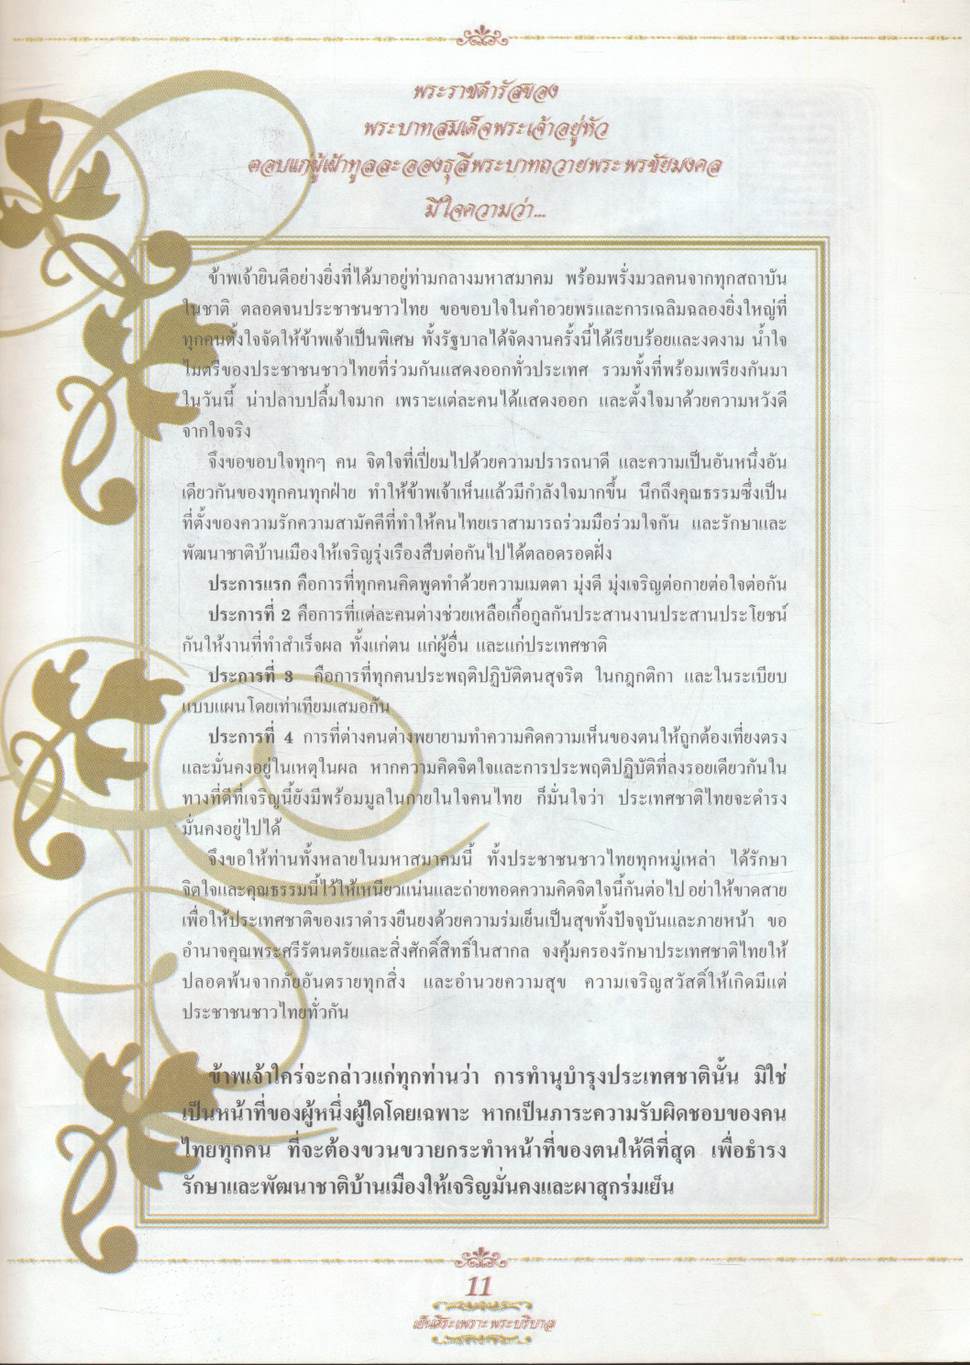 พระราชดำรัสของ
พระบาทสมเด็จพระเจ้าอยู่หัว
ตอบแก่ผู้เฝ้าทูลละอองธุลีพระบาทถวายพระพรชัยมงคล
มีใจความว่า...
ข้าพเจ้ายินดีอย่างยิ่งที่ได้มาอยู่ท่ามกลางมหาสมาคม พร้อมพรั่งมวลคนจากทุกสถาบัน
ในชาติ ตลอดจนประชาชนชาวไทย ขอขอบใจในคำอวยพรและการเฉลิมฉลองยิ่งใหญ่ที่
ทุกคนตั้งใจจัดให้ข้าพเจ้าเป็นพิเศษ ทั้งรัฐบาลได้จัดงานครั้งนี้ได้เรียบร้อยและงดงาม น้ำใจ
ไมตรีของประชาชนชาวไทยที่ร่วมกันแสดงออกทั่วประเทศ รวมทั้งที่พร้อมเพรียงกันมา
ในวันนี้ น่าปลาบปลื้มใจมาก เพราะแต่ละคนได้แสดงออก และตั้งใจมาด้วยความหวังดี
จากใจจริง
จึงขอขอบใจทุกๆ คน จิตใจที่เปี่ยมไปด้วยความปรารถนาดี และความเป็นอันหนึ่งอัน
เดียวกันของทุกคนทุกฝ่าย ทำให้ข้าพเจ้าเห็นแล้วมีกำลังใจมากขึ้น นึกถึงคุณธรรมซึ่งเป็น
ที่ตั้งของความรักความสามัคคีที่ทำให้คนไทยเราสามารถร่วมมือร่วมใจกัน และรักษาและ
พัฒนาชาติบ้านเมืองให้เจริญรุ่งเรืองสืบต่อกันไปได้ตลอดรอดฝั่ง
ประการแรก คือการที่ทุกคนคิดพูดทำด้วยความเมตตา มุ่งดี มุ่งเจริญต่อกายต่อใจต่อกัน
ประการที่ 2 คือการที่แต่ละคนต่างช่วยเหลือเกื้อกูลกันประสานงานประสานประโยชน์
กันให้งานที่ทำสำเร็จผล ทั้งแก่ตน แก่ผู้อื่น และแก่ประเทศชาติ
ประการที่ 3 คือการที่ทุกคนประพฤติปฏิบัติตนสุจริต ในกฎกติกา และในระเบียบ
แบบแผนโดยเท่าเทียมเสมอกัน
ประการที่ 4 การที่ต่างคนต่างพยายามทำความคิดความเห็นของตนให้ถูกต้องเที่ยงตรง
และมั่นคงอยู่ในเหตุในผล หากความคิดจิตใจและการประพฤติปฏิบัติที่ลงรอยเดียวกันใน
ทางที่ดีที่เจริญนี้ยังมีพร้อมมูลในกายในใจคนไทย ก็มั่นใจว่า ประเทศชาติไทยจะดำรง
มั่นคงอยู่ไปได้
จึงขอให้ท่านทั้งหลายในมหาสมาคมนี้ ทั้งประชาชนชาวไทยทุกหมู่เหล่า ได้รักษา
จิตใจและคุณธรรมนี้ไว้ให้เหนียวแน่นและถ่ายทอดความคิดจิตใจนี้กันต่อไป อย่าให้ขาดสาย
เพื่อให้ประเทศชาติของเราดำรงยืนยงด้วยความร่มเย็นเป็นสุขทั้งปัจจุบันและภายหน้า ขอ
อำนาจคุณพระศรีรัตนตรัยและสิ่งศักดิ์สิทธิ์ในสากล จงคุ้มครองรักษาประเทศชาติไทยให้
ปลอดพ้นจากภัยอันตรายทุกสิ่ง และอำนวยความสุข ความเจริญสวัสดิ์ให้เกิดมีแด่
ประชาชนชาวไทยทั่วกัน
ข้าพเจ้าใคร่จะกล่าวแก่ทุกท่านว่า การทำนุบำรุงประเทศชาตินั้น มิใช่
เป็นหน้าที่ของผู้หนึ่งผู้ใดโดยเฉพาะ หากเป็นภาระความรับผิดชอบของคน
ไทยทุกคน ที่จะต้องขวนขวายกระทำหน้าที่ของตนให้ดีที่สุด เพื่อธำรง
รักษาและพัฒนาชาติบ้านเมืองให้เจริญมั่นคงและผาสุกร่มเย็น
11
เย็นศิระเพราะพระบริบาล